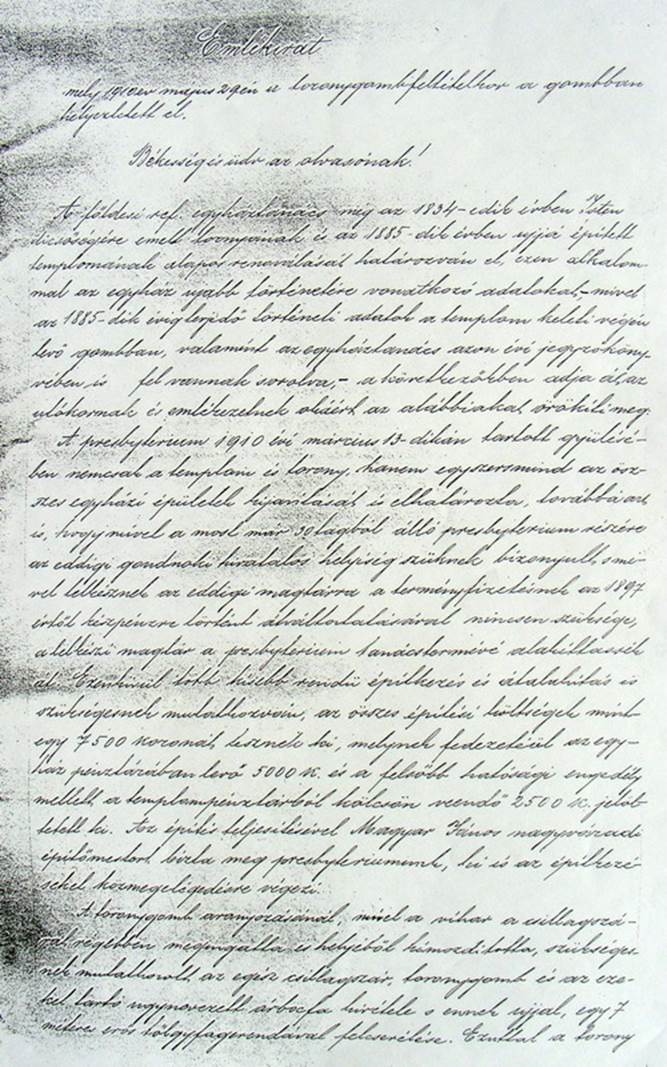 Emlékirat
mely 1910 év május 29én a toronygombfeltételkor a gombban
helyeztetett el.
Békesség és üdv az olvasónak!
A földesi ref. egyháztanács még az 1834-edik évben Isten
dicsőségére emelt tornyának és az 1885-dik évben ujjá épített
templomának alapos renoválását határozván el, ezen alkalom-
mal az egyház ujabb történetére vonatkozó adatokat, - mivel
az 1885-dik évig terjedő történeti adatok a templom keleti végén
levő gombban, valamint az egyháztanács azon évi jegyzőköny-
vében is fel vannak sorolva, - a következőkben adja át az
utókornak és emlékezetnek okáért az alábbiakat örökíti meg:
A presbyterium 1910 évi március 13-dikán tartott gyülésé-
ben nemcsak a templom és torony, hanem egyszersmind az ösz-
szes egyházi épületek kijavítását is elhatározta, továbbá azt
is, hogy mivel a most már 50 tagból álló presbyterium részére
az eddigi gondnoki hivatalos helyiség szüknek bizonyult, s mi-
vel lelkésznek az eddigi magtárra a terményfizetésnek az 1897
évtől készpénzre történt átváltoztatásával nincsen szüksége,
a lelkészi magtár a presbyterium tanácstermévé alakíttassék
át. Ezenkívül több kisebb rendü építkezés és átalakítás is
szükségesnek mutatkozván, az összes építési költségek mint-
egy 7500 koronát tesznek ki, melynek fedezetéül az egy-
ház pénztárában levő 5000 K. és a felsőbb hatósági engedély
mellett a templompénztárból kölcsön veendő 2500 K. jelöl-
tetett ki. Az építés teljesítésével Magyar János nagyváradi
építőmestert bízta meg presbyteriumunk, ki is az építkezé-
seket közmegelégedésre végezi.
A toronygomb aranyozásánál, mivel a vihar a csillagszá-
rat régebben megingatta és helyéből kimozdította, szükséges-
nek mutatkozott az egész csillagszár, toronygomb és az eze-
ket tartó ugynevezett árbocfa kivétele s ennek ujjal, egy 7
méteres erős tölgyfagerendával felcserélése. Ezuttal a torony